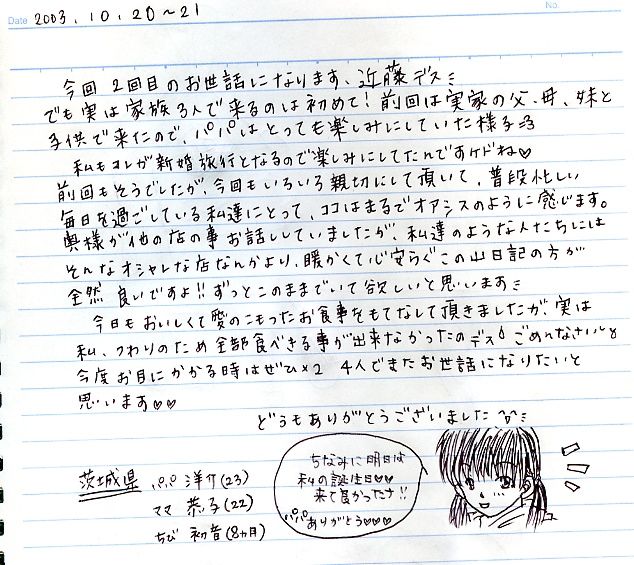 Date 2003.10.20〜21
No.
今回 2回目のお世話になります、近藤デス
でも実は家族3人で来るのは初めて!前回は実家の父、母、妹と
子供で来たので、パパはとっても楽しみにしていた様子
私もコレが新婚旅行となるので楽しみにしてたんですケドね♡
前回もそうでしたが、今回もいろいろ親切にして頂いて、普段忙しい
毎日を過ごしている私達にとって、ココはまるでオアシスのように感じます。
奥様が他の店の事お話ししていましたが、私達のような人たちには
そんなオシャレな店なんかより、暖かくて心安らぐこの山日記の方が
全然 良いですよ!!ずっとこのままでいて欲しいと思います
今日もおいしくて愛のこもったお食事をもてなして頂きましたが、実は
私、つわりのため全部食べきる事が出来なかったのデス ごめんなさい
今度お目にかかる時はぜひ×2 4人でまたお世話になりたいと
思います♡♡
どうもありがとうございました
茨城県 パパ 洋介(23)
ママ 恭子(22)
ちび 初音(8ヵ月)
ちなみに明日は
私の誕生日♡♡
来て良かったナ!!
パパありがとう♡♡♡